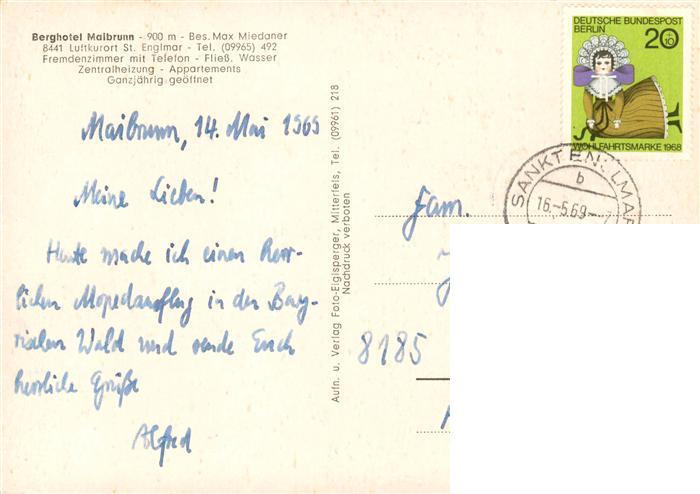 Berghotel Maibrunn - 900 m - Bes. Max Miedaner
8441 Luftkurort St. Englmar - Tel. (09965) 492
Fremdenzimmer mit Telefon - Fließ. Wasser
Zentralheizung - Appartements
Ganzjährig geöffnet
Maibrunn, 14. Mai 1969
Meine Lieben!
Heute mache ich einen herr-
lichen Mopedausflug in den Bay-
rischen Wald und sende Euch
herzliche Grüße
Alfred
Aufn. u. Verlag Foto-Elgisperger, Mitterfels, Tel. (09961) 218
Nachdruck verboten
DEUTSCHE BUNDESPOST
BERLIN
20+10
WOHLFAHRTSMARKE 1968
SANKT ENGLMAR
b
16.-5.69-
Fam.
8185